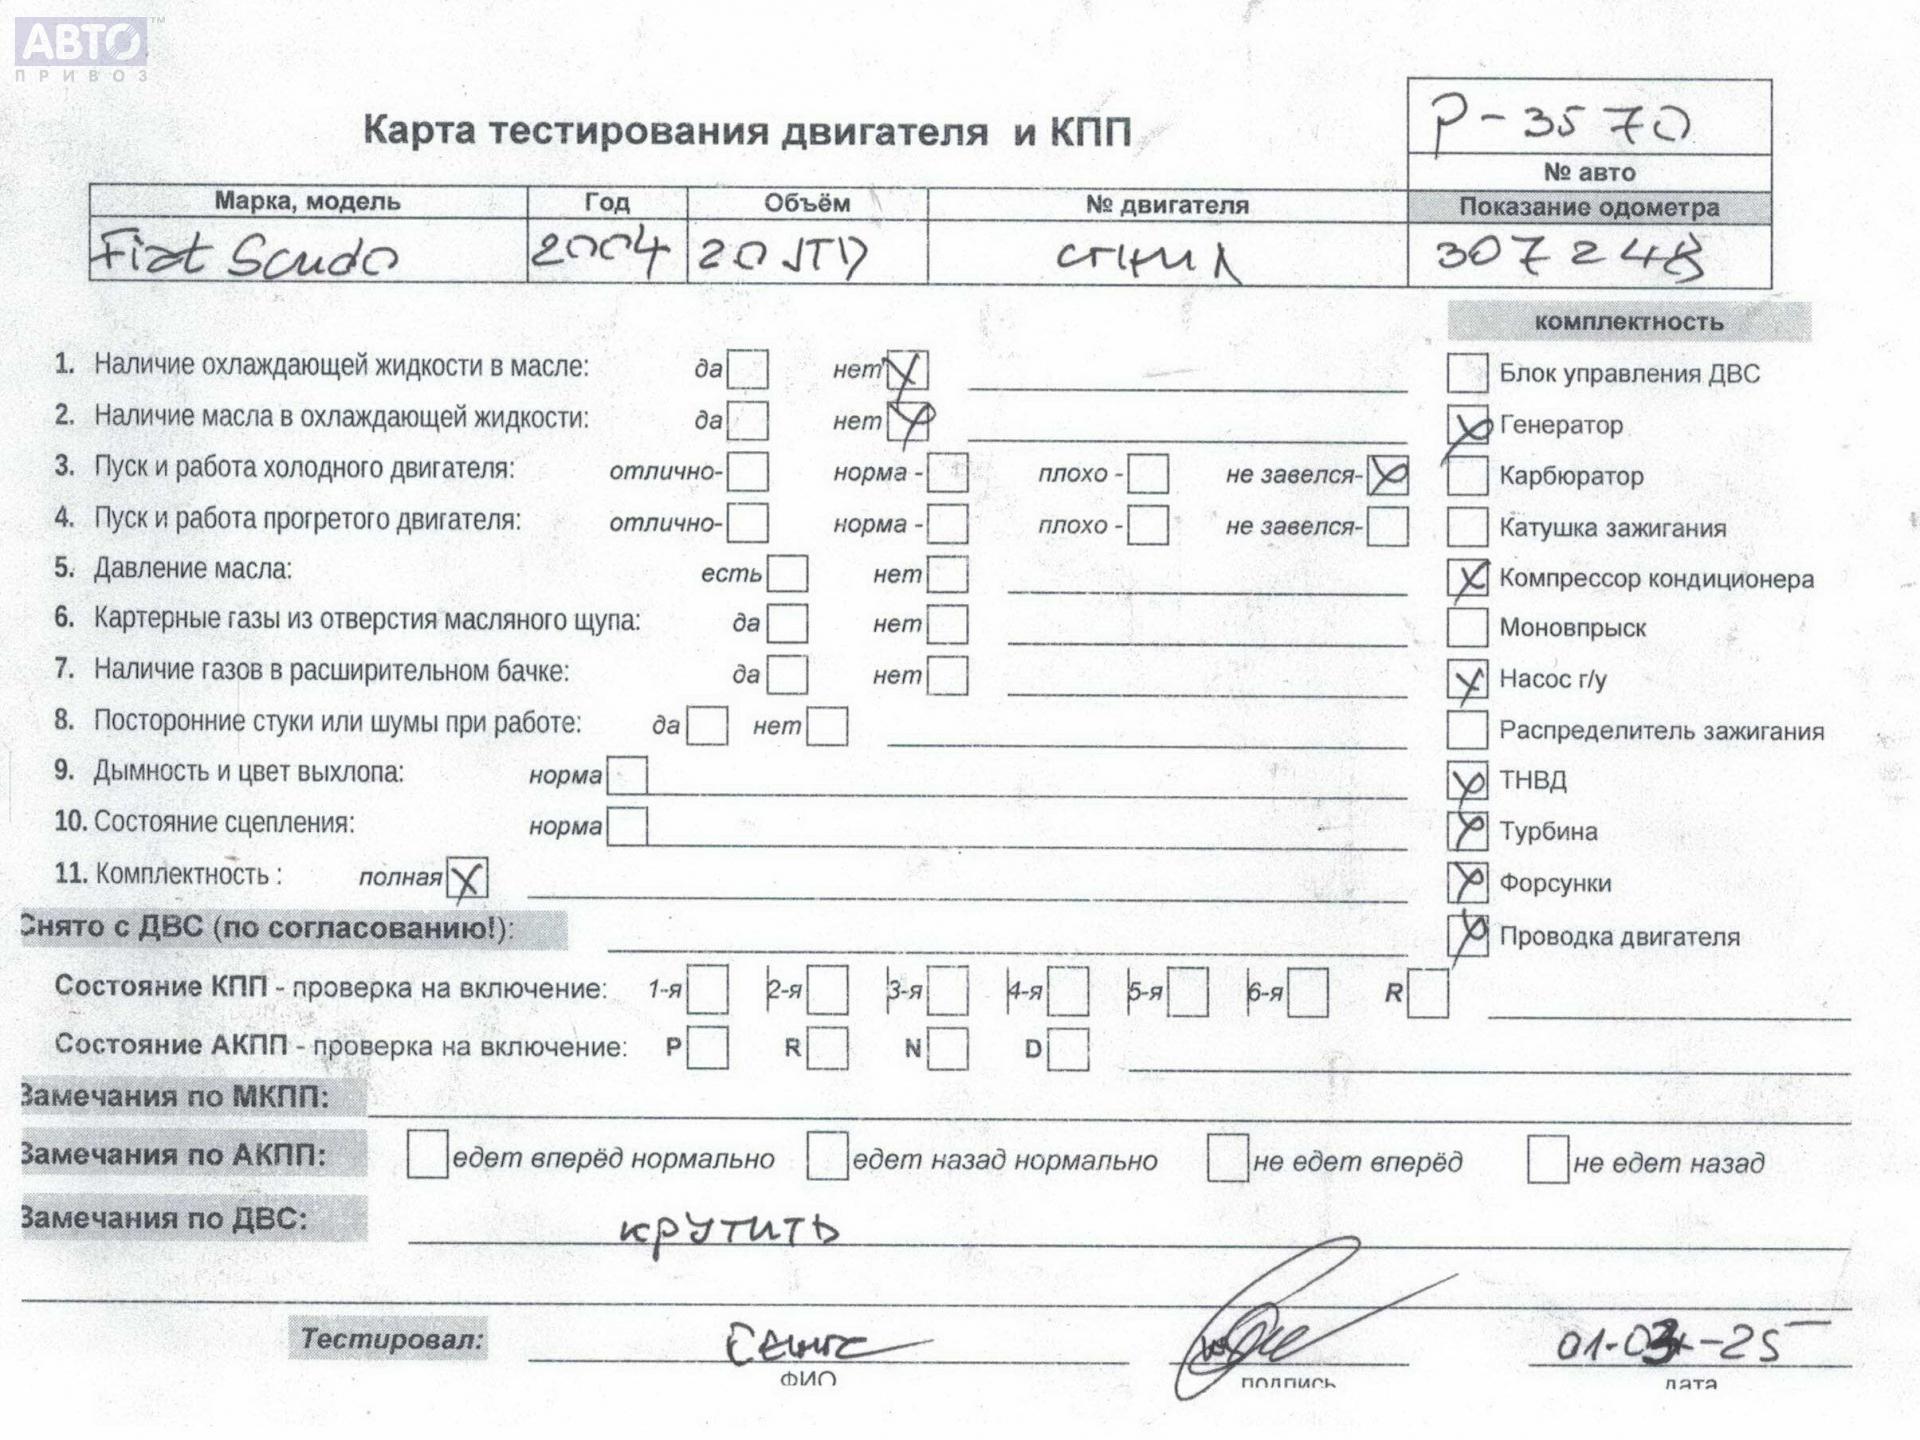 АВТО™
ПРИВОЗ
P-3570
Карта тестирования двигателя и КПП
№ авто
Марка, модель Год Объём № двигателя Показание одометра
Fiat Scudo 2004 20 JTD 307248
комплектность
1. Наличие охлаждающей жидкости в масле: да нет X Блок управления ДВС
2. Наличие масла в охлаждающей жидкости: да нет X X Генератор
3. Пуск и работа холодного двигателя: отлично- норма - плохо - не завелся- X Карбюратор
4. Пуск и работа прогретого двигателя: отлично- норма - плохо - не завелся- Катушка зажигания
5. Давление масла: есть нет X Компрессор кондиционера
6. Картерные газы из отверстия масляного щупа: да нет Моновпрыск
7. Наличие газов в расширительном бачке: да нет X Насос г/у
8. Посторонние стуки или шумы при работе: да нет Распределитель зажигания
9. Дымность и цвет выхлопа: норма X ТНВД
10. Состояние сцепления: норма X Турбина
11. Комплектность : полная X X Форсунки
Снято с ДВС (по согласованию!): X Проводка двигателя
Состояние КПП - проверка на включение: 1-я 2-я 3-я 4-я 5-я 6-я R
Состояние АКПП - проверка на включение: P R N D
Замечания по МКПП:
Замечания по АКПП: едет вперёд нормально едет назад нормально не едет вперёд не едет назад
Замечания по ДВС: крутить
Тестировал: 01-03-25
ФИО подпись дата